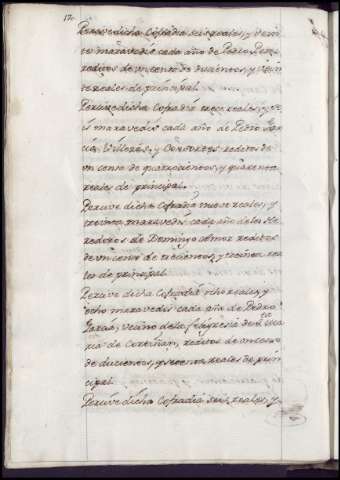 Percive dicha Cofradia seis reales, y vein
te maravedis cada año de Pedro
reditos de un censo de ducientos y vein
te reales de principal.
Percive dicha Cofradia trece reales, y se
is maravedis cada año de Pedro
Villoras, y Consortes reditos de
un censo de quatrocientos, y quarenta
reales de principal.
Percive dicha Cofradia nueve reales, y
treinta maravedis cada año de los He
rederos de Domingo reditos
de un censo de trecientos, y treinta rea
les de principal
Percive dicha Cofradia ocho reales, y
ocho maravedis cada año de Pedro
vecino de la feligresia de Sta Ma
ria de reditos de un censo
de ducientos, y setenta reales de prin
cipal
Percive dicha Cofradia seis reales, y